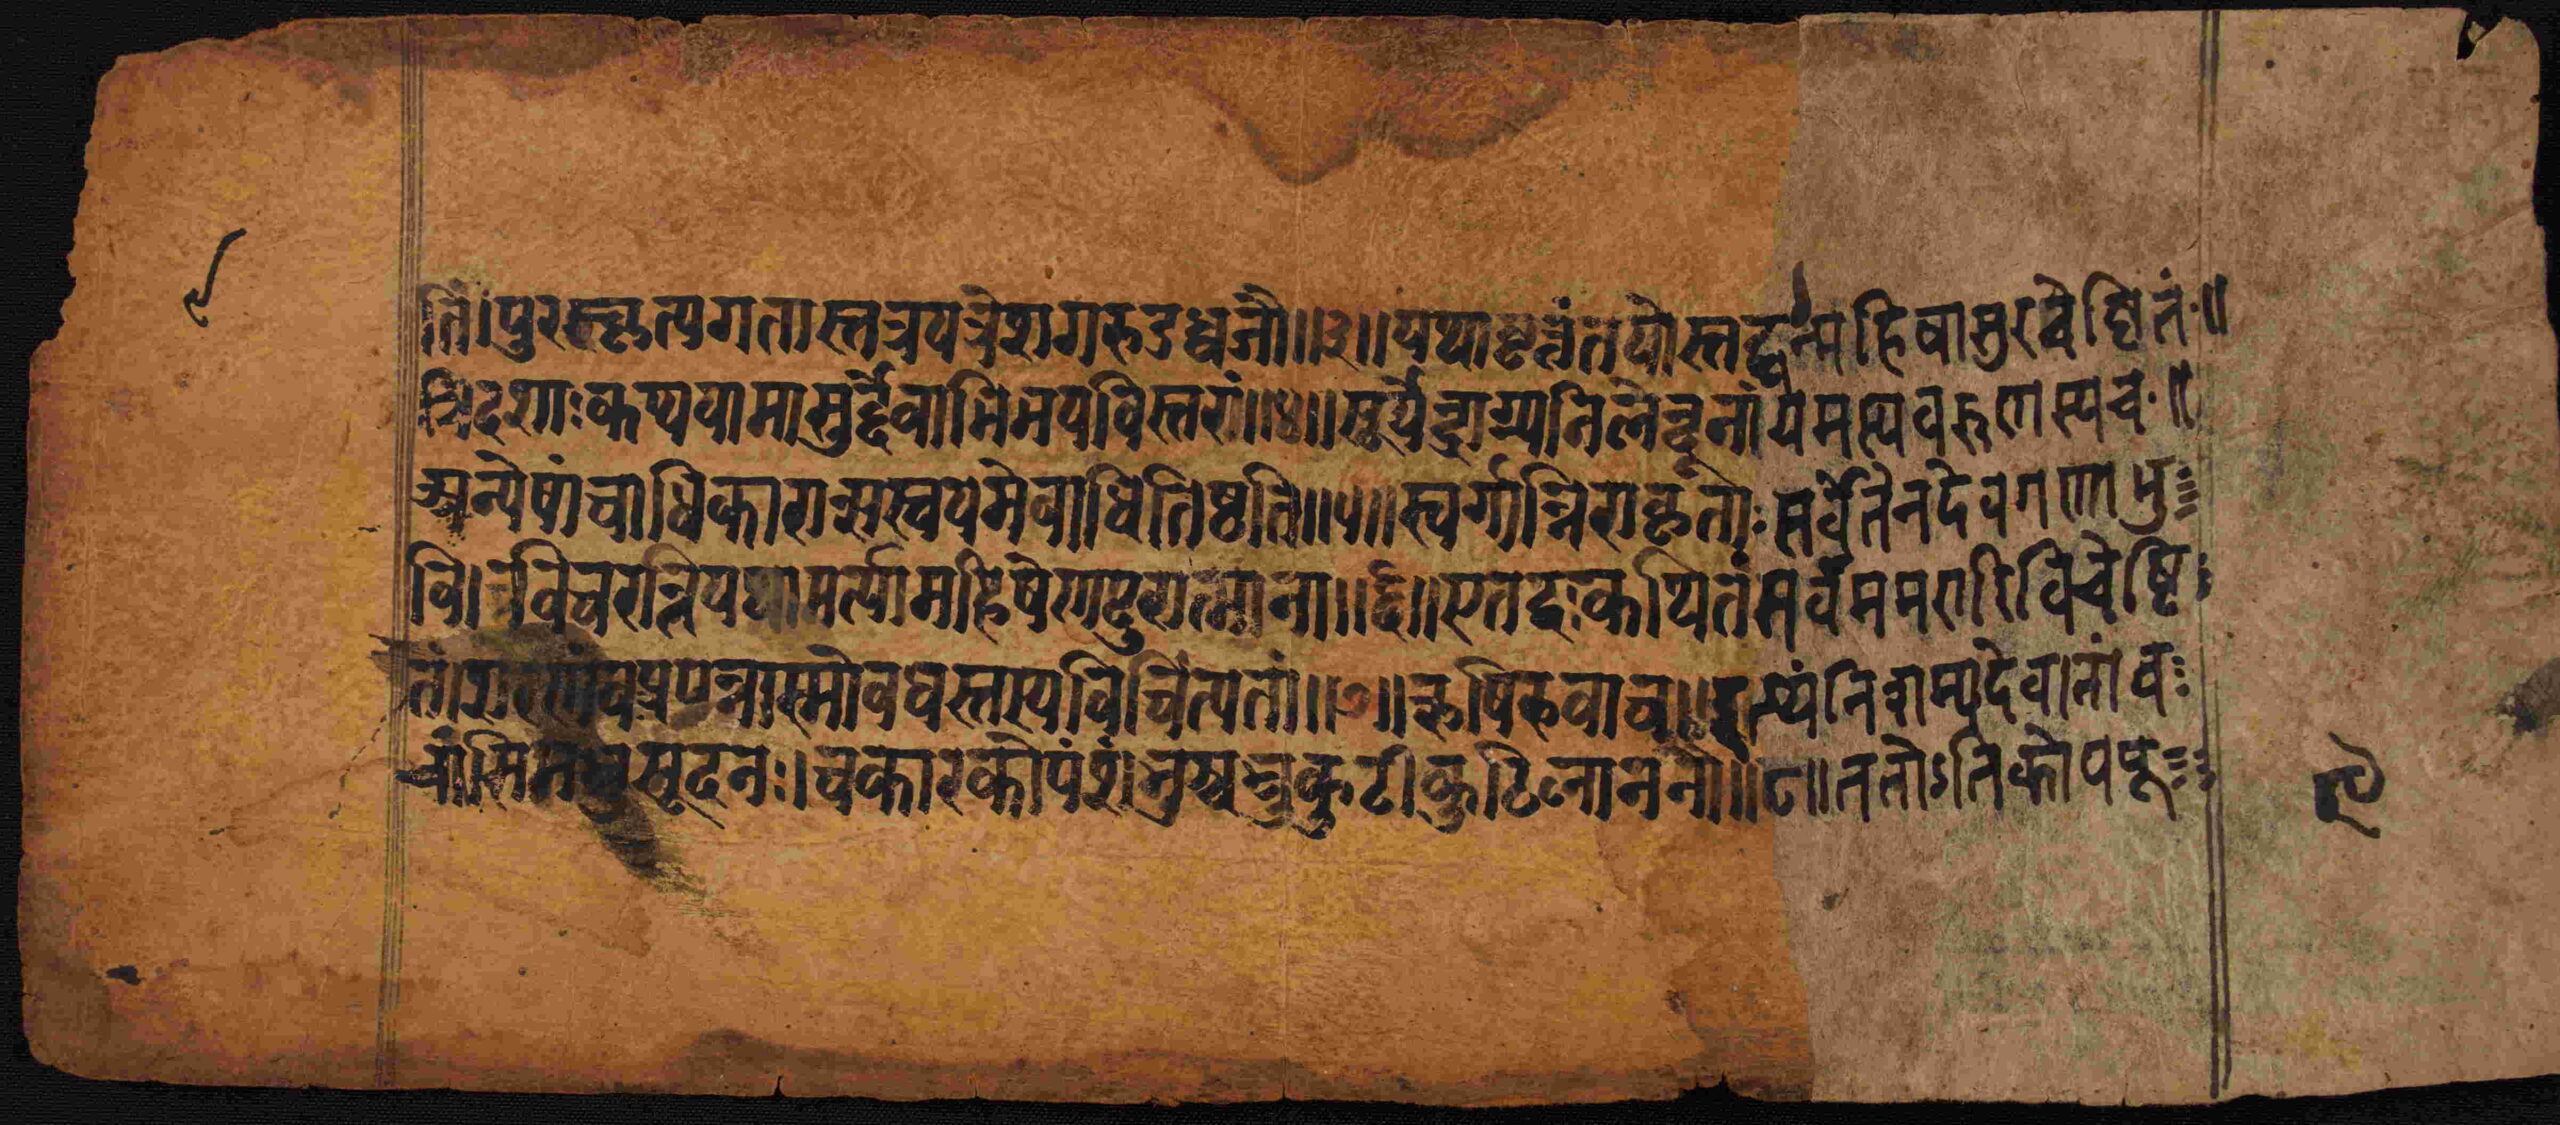 तिं। पुरस्कृत्य गतास्तत्र यत्रेश गरुडध्वजौ॥३॥ यथावृत्तं तयोस्तद्वन्महिषासुरचेष्टितं॥
त्रिदशाः कथयामासुर्द्देवाभिभवविस्तरं॥४॥ सूर्येंद्राग्न्यनिलेन्दूनां यमस्य वरुणस्य च॥
अन्येषां चाधिकारान्सस्वयमेवाधितिष्ठति॥५॥ स्वर्गान्निराकृताः सर्वे तेन देवगणा भु
वि। विचरन्ति यथा मर्त्या महिषेण दुरात्मना॥६॥ एतद्वः कथितं सर्वममरारिविचेष्टि
तं। शरणं वः प्रपन्नाः स्मो वधस्तस्य विचिंत्यतां॥७॥ ऋषिरुवाच॥ इत्थं निशम्य देवानां व
चांसि मधुसूदनः। चकार कोपं शंभुश्च भ्रुकुटीकुटिलाननौ॥८॥ ततोऽतिकोपपू
९